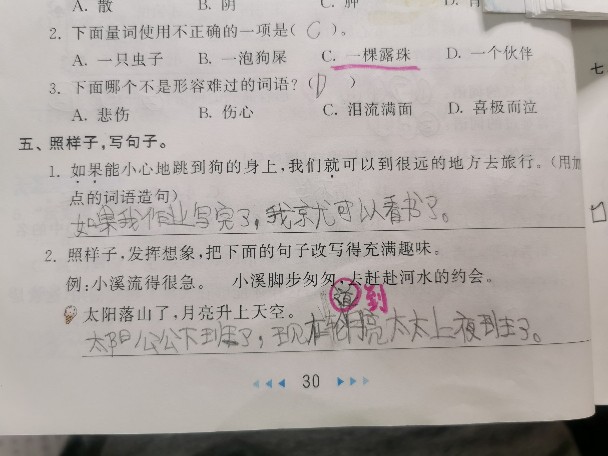 A. 散 B. 阴 C. 肿 D. 肯
2. 下面量词使用不正确的一项是( C )。
A. 一只虫子 B. 一泡狗屎 C. 一棵露珠 D. 一个伙伴
3. 下面哪个不是形容难过的词语?( D )
A. 悲伤 B. 伤心 C. 泪流满面 D. 喜极而泣
五、照样子,写句子。
1. 如果能小心地跳到狗的身上,我们就可以到很远的地方去旅行。(用加
点的词语造句)
如果我作业写完了,我就可以看书了。
2. 照样子,发挥想象,把下面的句子改写得充满趣味。
例:小溪流得很急。 小溪脚步匆匆,去赶赴河水的约会。
道 到
太阳落山了,月亮升上天空。
太阳公公下班了,现 月亮太太上夜班了。
30
七